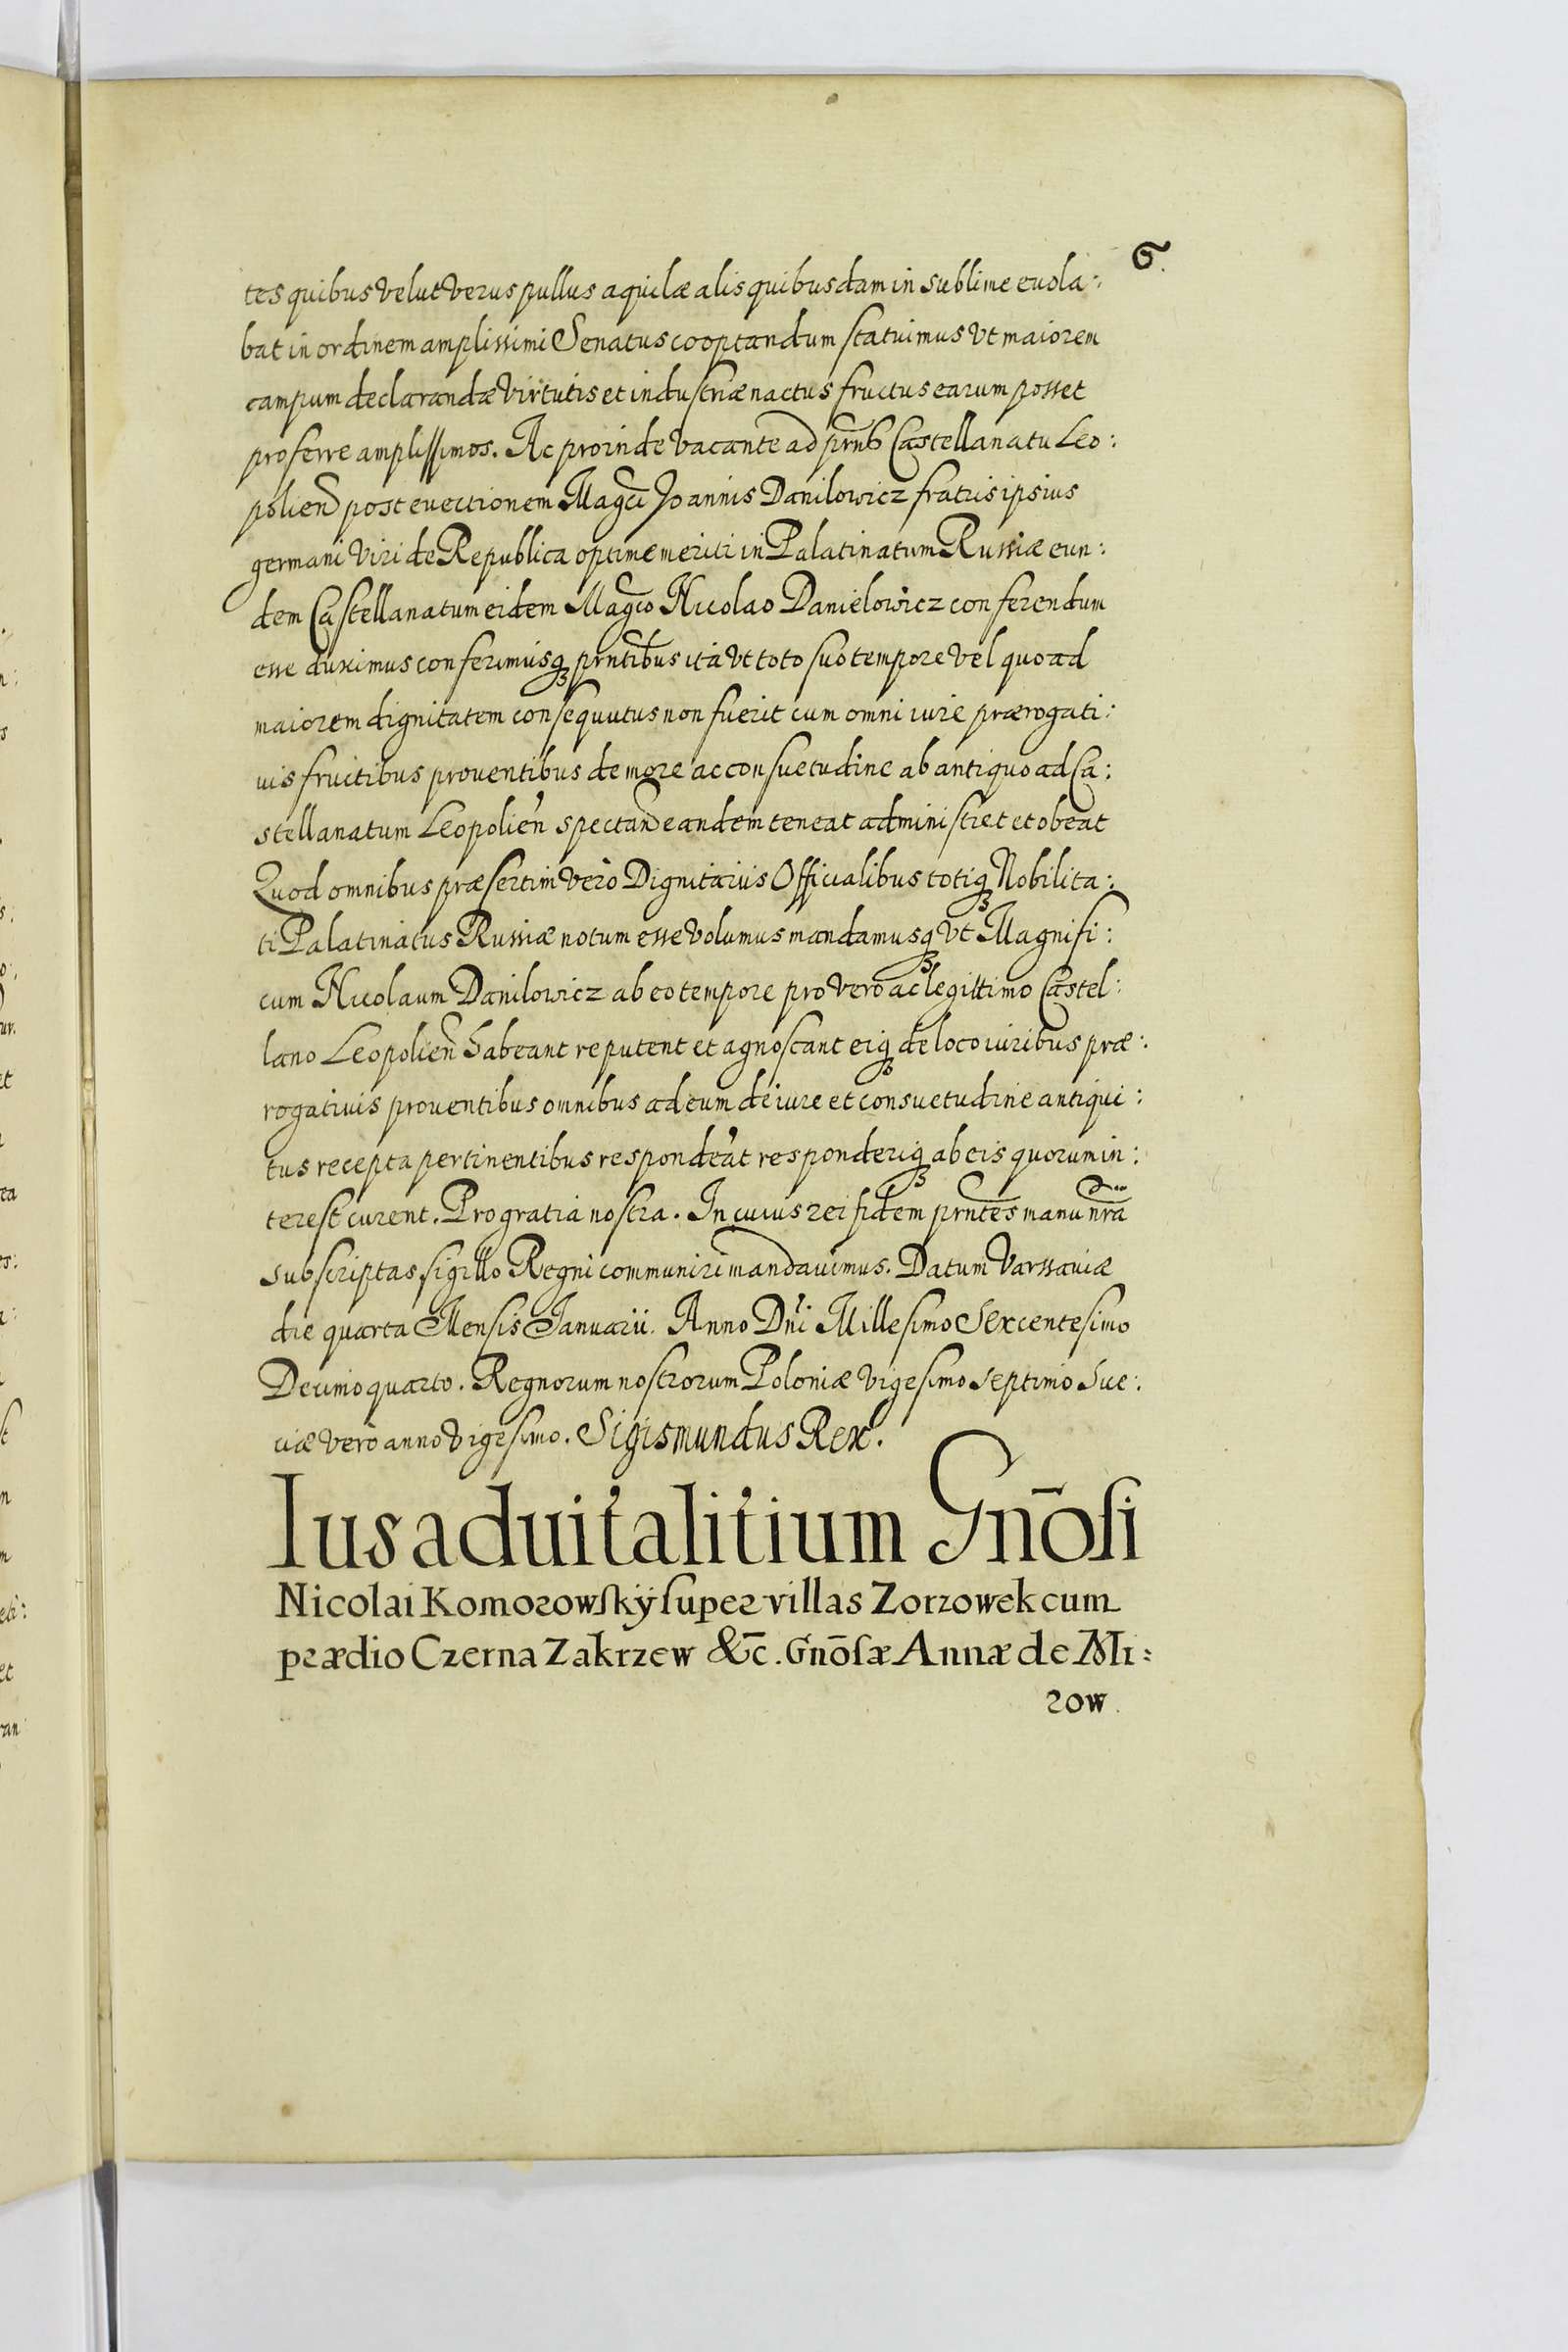 6.
tes quibus velut verus pullus aquilæ alis quibusdam in sublime euola:
bat in ordinem amplissimi Senatus cooptandum statuimus vt maiorem
campum declarandæ virtutis et industriæ nactus fructus earum posset
proferre amplissimos. Ac proinde vacante ad prns Castellanatu Leo:
polien post euectionem Magci Joannis Danilowicz fratris ipsius
germani viri de Republica optime meriti in Palatinatum Russiæ eun:
dem Castellanatum eidem Magco Nicolao Danielowicz conferendum
esse duximus conferimusq prntibus ità vt toto suo tempore vel quoad
maiorem dignitatem consequutus non fuerit cum omni iure prærogati:
uis fructibus prouentibus de more ac consuetudine ab antiquo ad Ca:
stellanatum Leopolien spectan eandem teneat administret et obeat
Quod omnibus præsertim verò Dignitariis Officialibus totiq Nobilita:
ti Palatinatus Russiæ notum esse volumus mandamusq vt Magnifi:
cum Nicolaum Danilowicz ab eo tempore pro vero ac legittimo Castel:
lano Leopolien habeant reputent et agnoscant eiq de loco iuribus præ:
rogatiuis prouentibus omnibus ad eum de iure et consuetudine antiqui:
tus recepta pertinentibus respondeat responderiq ab eis quorum in:
terest curent. Pro gratia nostra. In cuius rei fidem prntes manu nrā
subscriptas sigillo Regni communiri mandauimus. Datum Varssauiæ
die quarta Mensis Januarii. Anno Dni Millesimo Sexcentesimo
Decimo quarto. Regnorum nostrorum Poloniæ vigesimo septimo Sue:
ciæ verò anno vigesimo. Sigismundus Rex.
Ius aduitalitium Gnōsi
Nicolai Komorowskÿ super villas Zorzowek cum
prædio Czerna Zakrzew &c̄. Gnōsæ Annæ de Mi:
row.